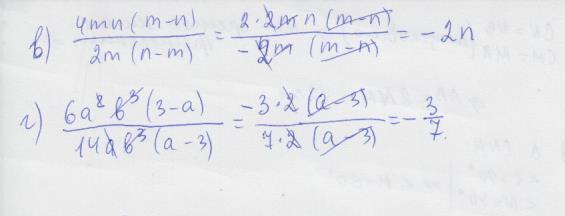 в) \frac{4mn(m-n)}{2m(n-m)} = \frac{2·2m n(m-n)}{-2m(m-n)} = -2n
г) \frac{6a²b³(3-a)}{14ab³(a-3)} = \frac{-3·2(a-3)}{7·2(a-3)} = -\frac{3}{7}.